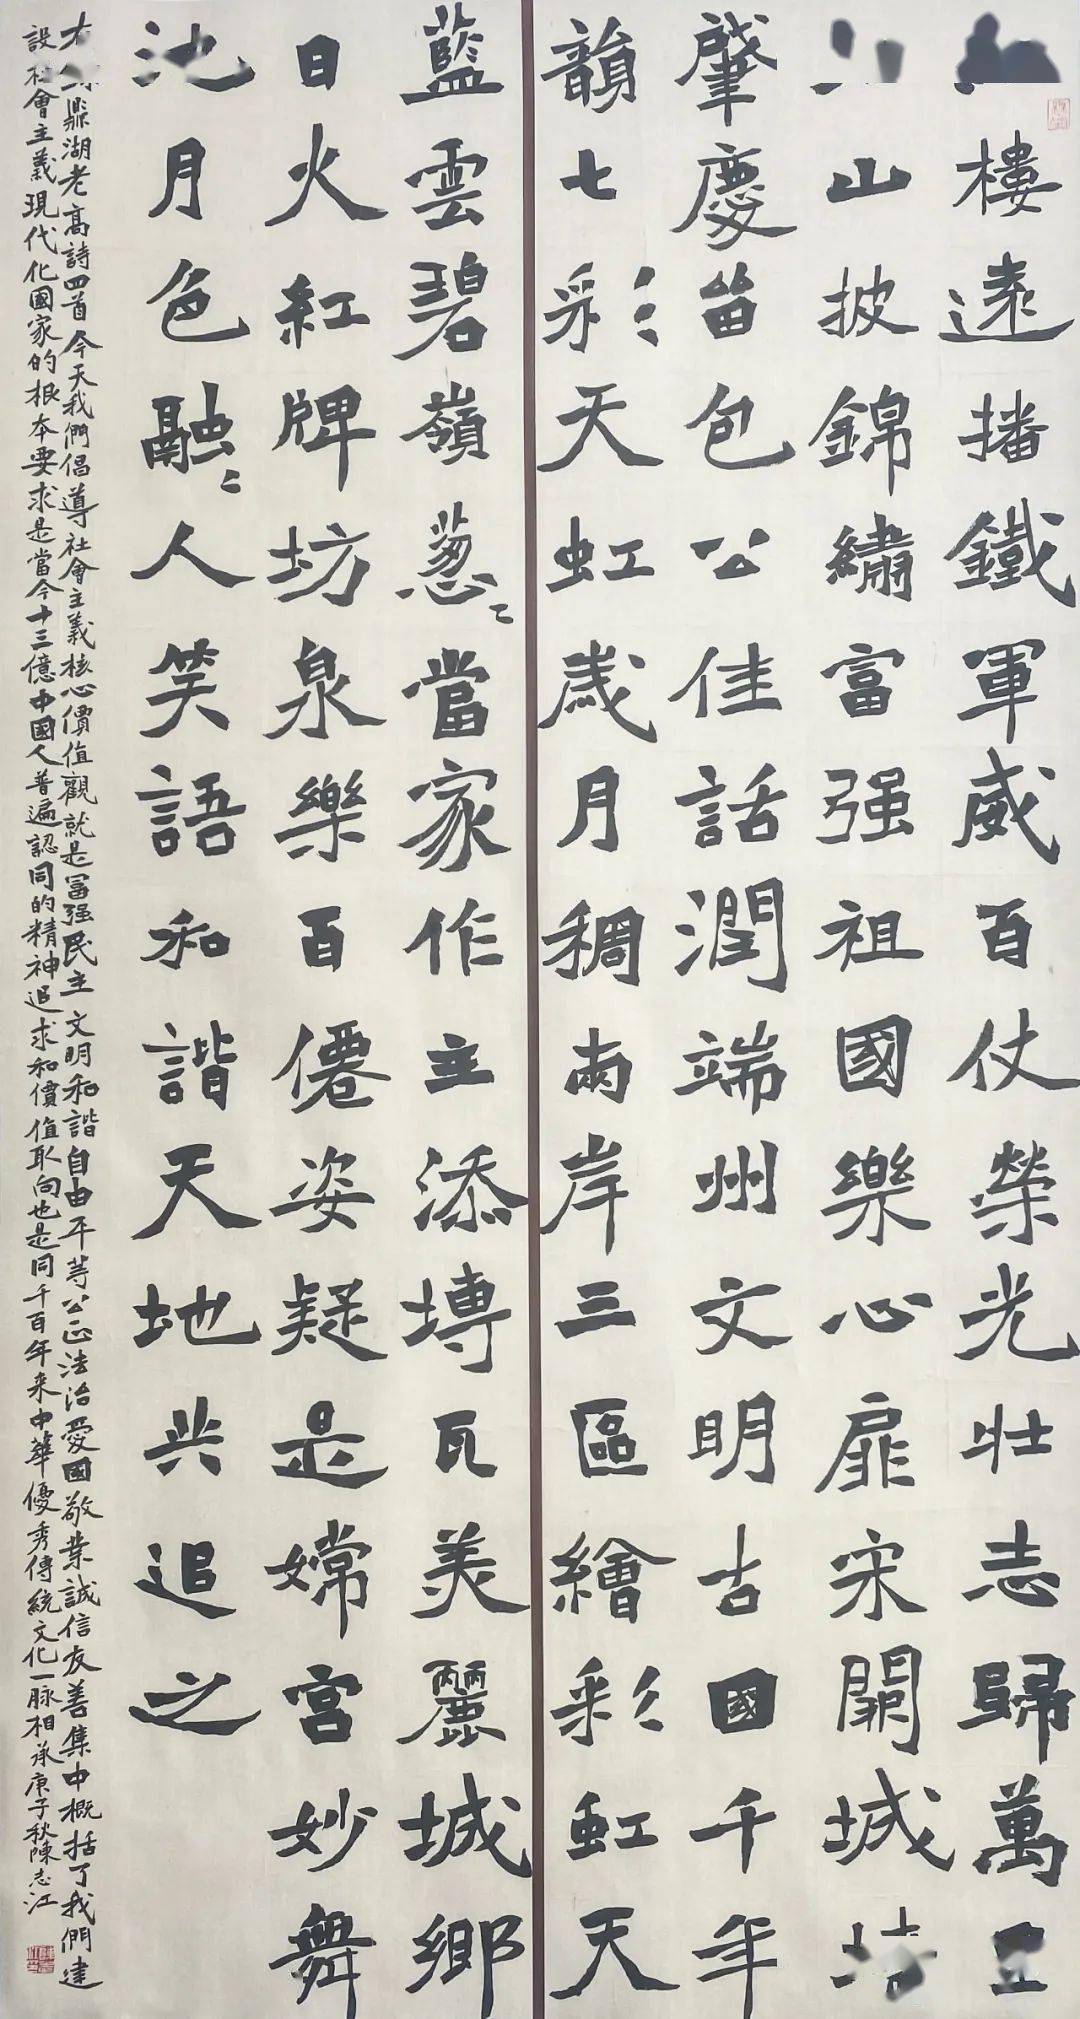 樓遠播鐵軍威百仗榮光壯志歸萬
山披錦繡富强祖國樂心扉宋關城
肇慶笛包公佳話潤端州文明古國千年
韻七彩〻天虹歲月稠兩岸三區繪彩〻虹天
藍雲碧嶺葱〻當家作主添塼瓦美麗城鄉
日火紅牌坊泉樂百僊姿疑是嫦宮妙舞
池月色融〻人笑語和諧天地共追之
鼎湖老高詩四首今天我們倡導社會主義核心價值觀就是富强民主文明和諧自由平等公正法治愛國敬業誠信友善集中概括了我們建
設社會主義現代化國家的根本要求是當今十三億中國人普遍認同的精神追求和價值取向也是同千百年来中華優秀傳統文化一脉相承庚子秋陳志江